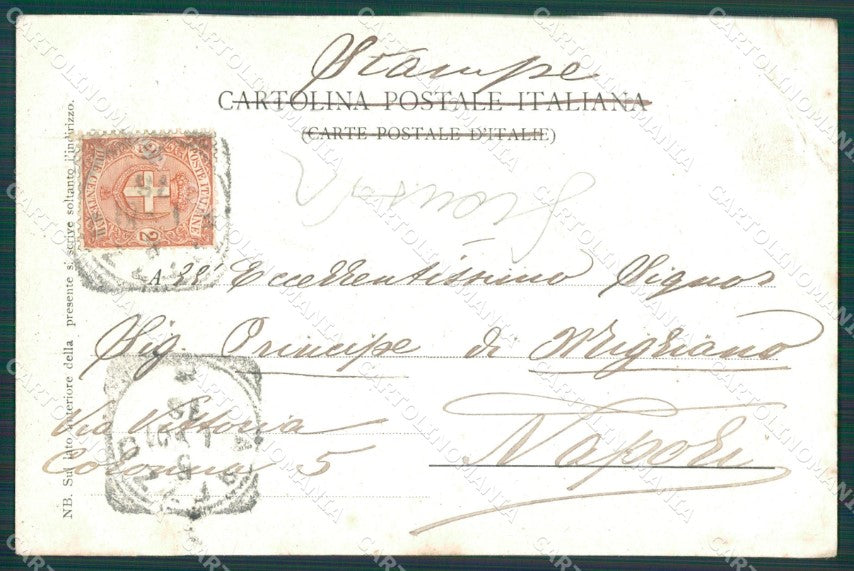 Stampe
CARTOLINA POSTALE ITALIANA
(CARTE POSTALE D'ITALIE)
POSTE ITALIANE
2
A Ill' Eccellentissimo Signor
Sig. Principe di Migliano
Via Vittoria
Colonna 5
Napoli
NB. Sul lato anteriore della presente si scrive soltanto l'indirizzo.
CARTOLINOMANIA